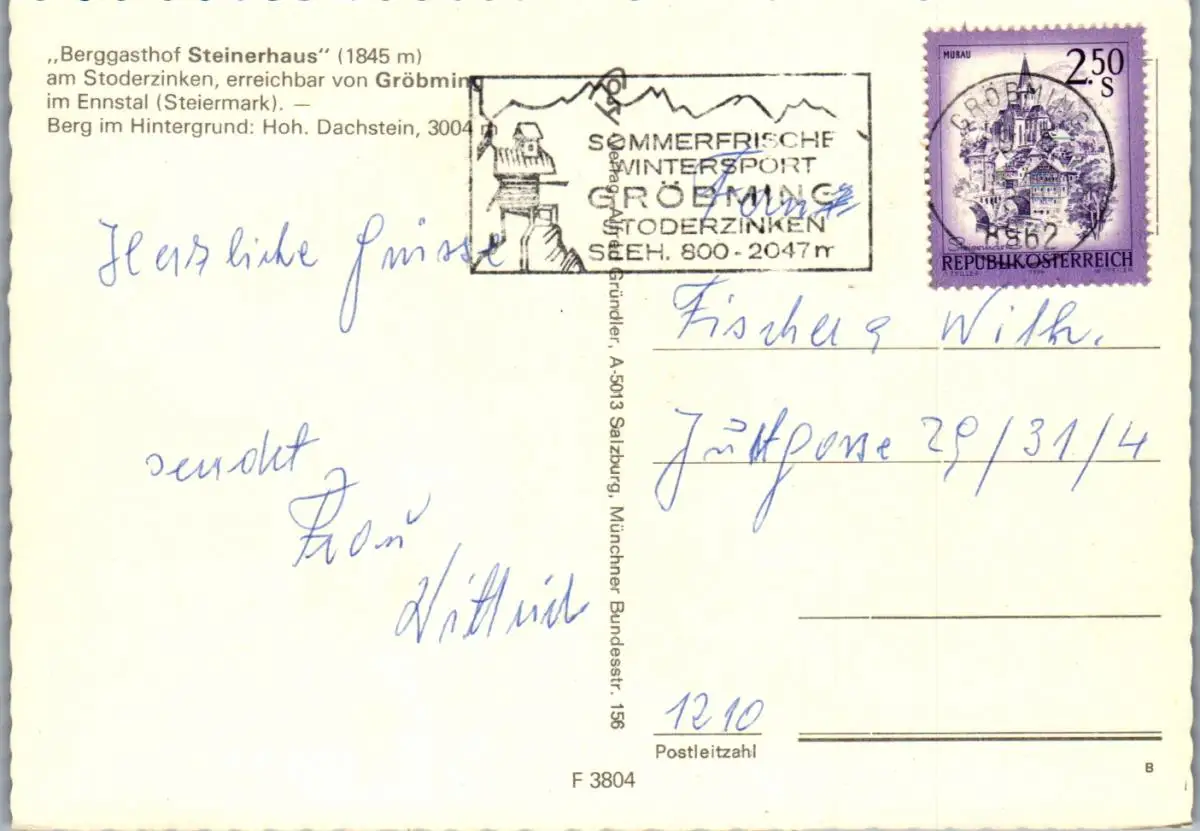 „Berggasthof Steinerhaus“ (1845 m)
am Stoderzinken, erreichbar von Gröbming
im Ennstal (Steiermark). —
Berg im Hintergrund: Hoh. Dachstein, 3004 m
SOMMERFRISCHE
WINTERSPORT
GRÖBMING
STODERZINKEN
SEEH. 800-2047m
MURAU
2.50
S
GRÖBMING
8962
Steiermark
REPUBLIK ÖSTERREICH
Herzliche Grüsse
sendet
Frau
Cosy-Verlag, Alfred Gründler, A-5013 Salzburg, Münchner Bundesstr. 156
Fam
Fischer Wilh.
29/31/4
1210
Postleitzahl
F 3804
B